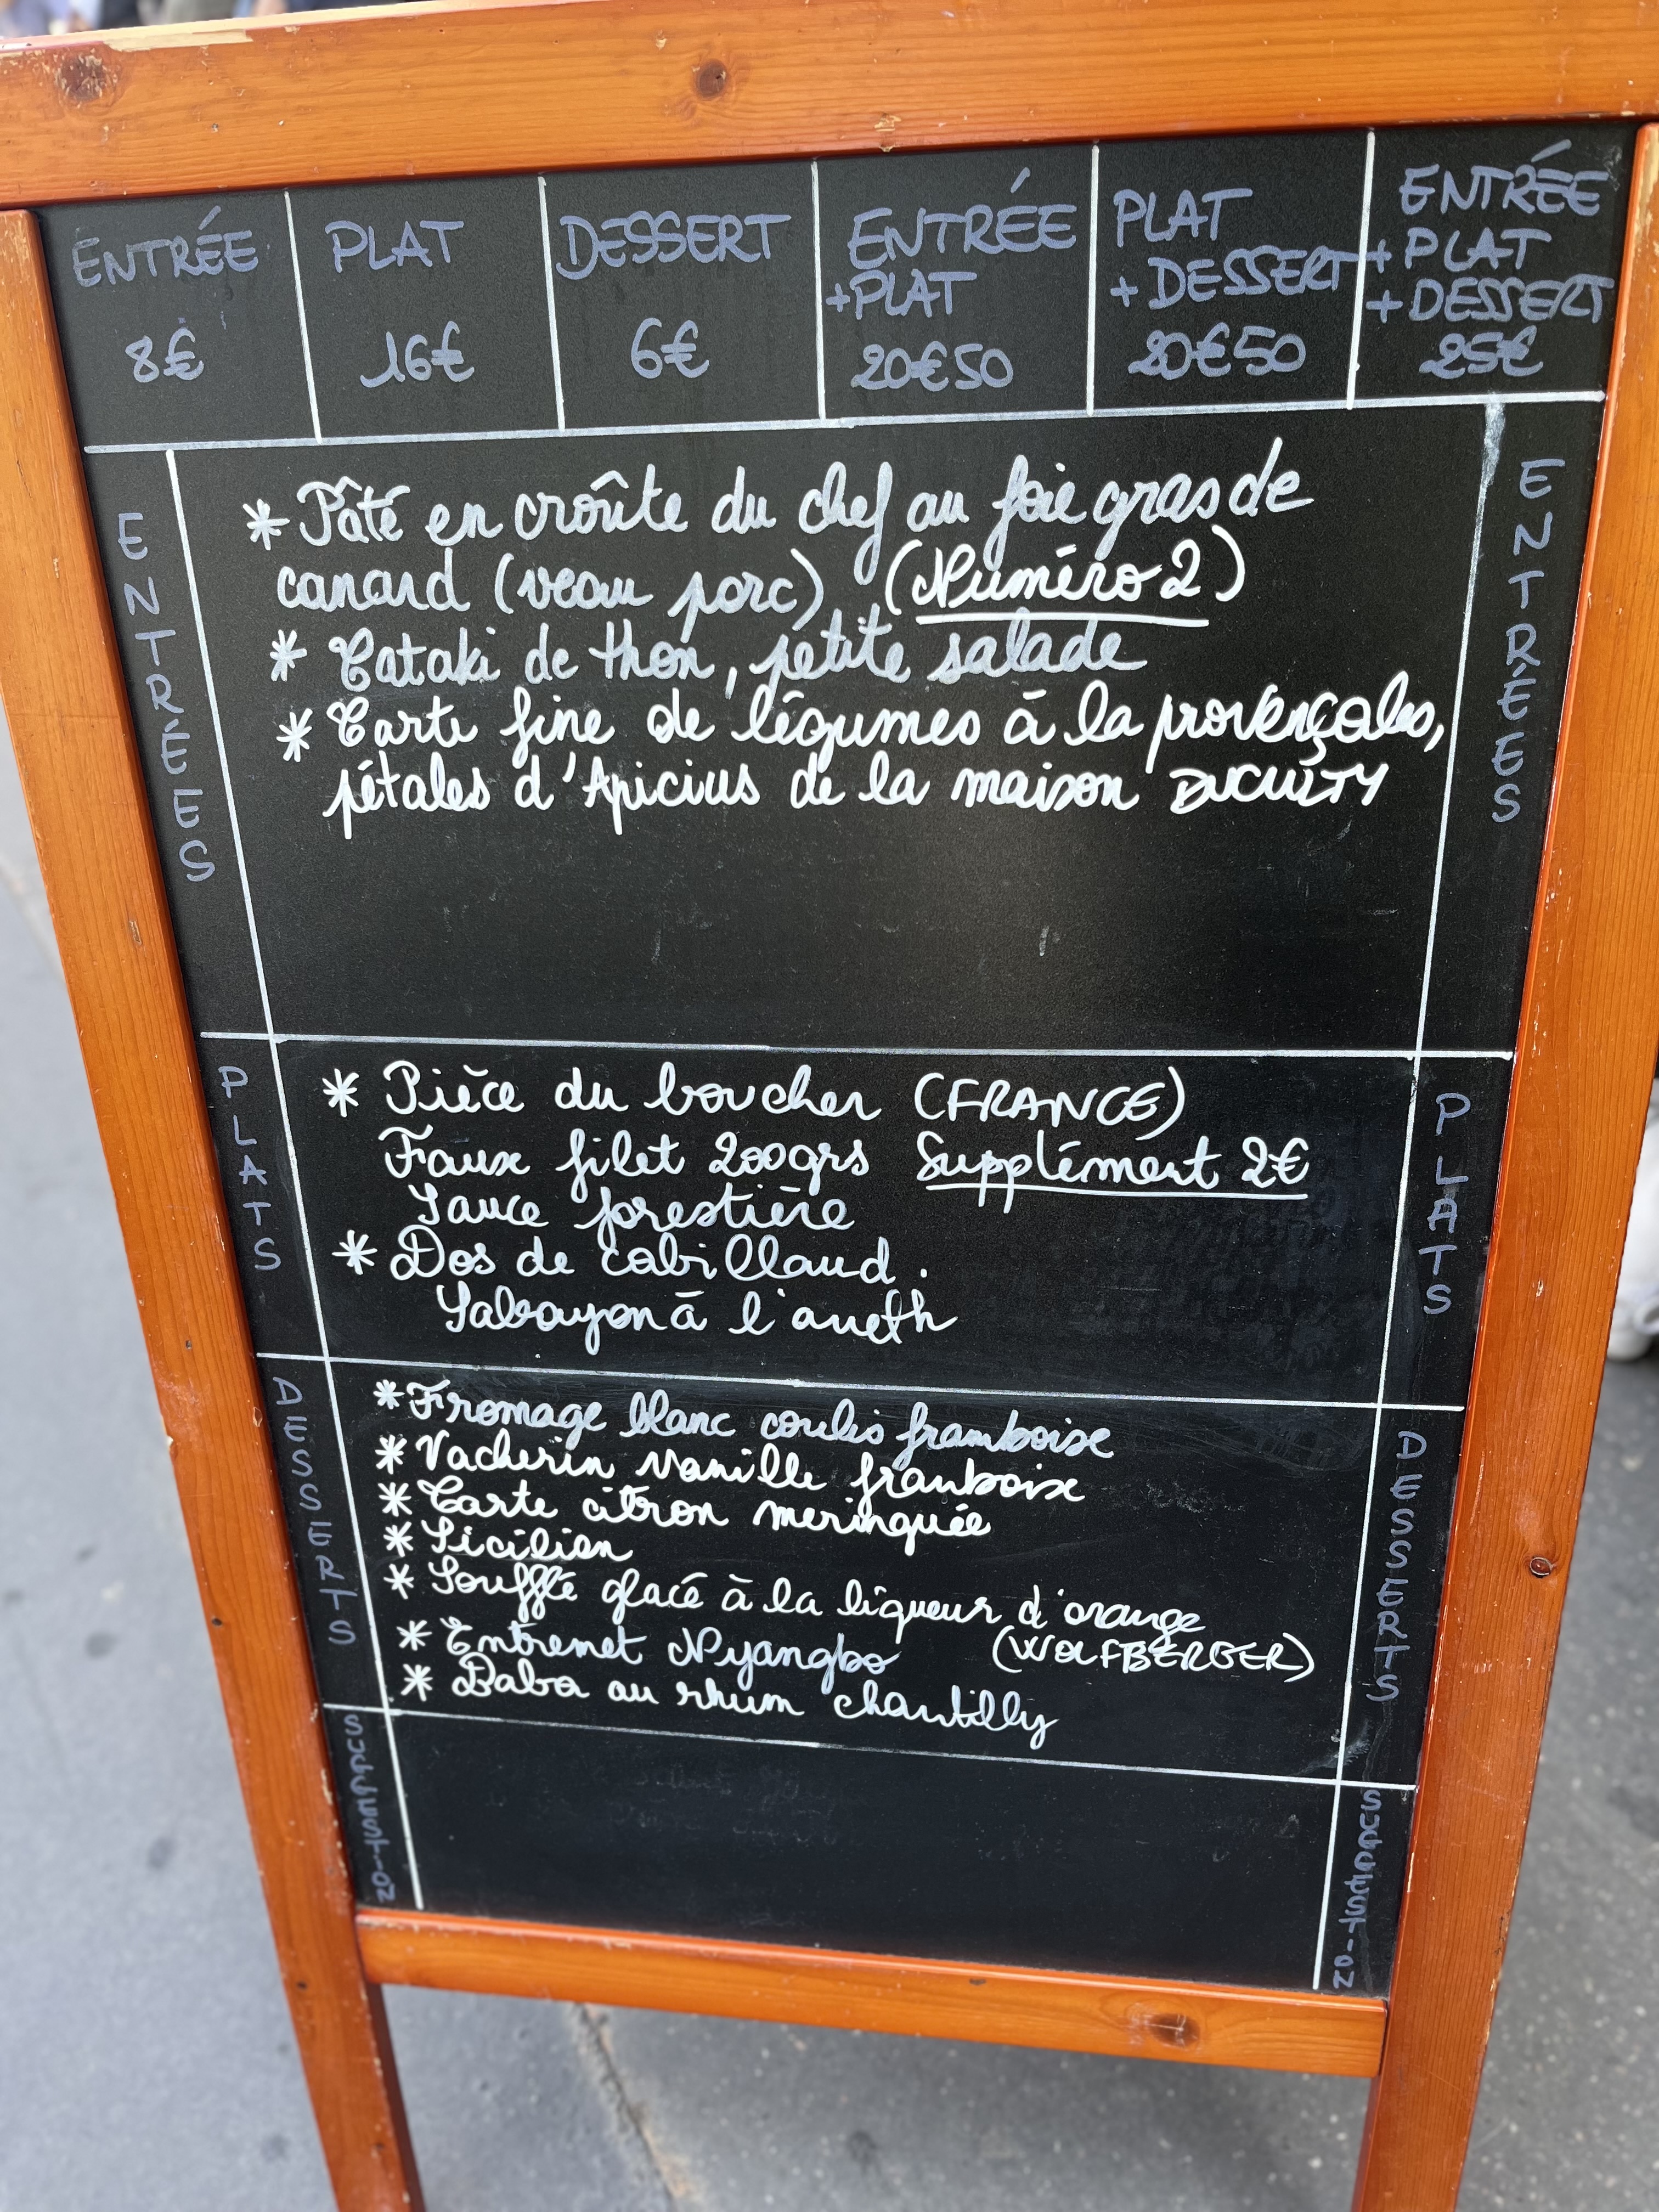 ENTRÉE
8€
PLAT
16€
DESSERT
6€
ENTRÉE
+PLAT
20€50
PLAT
+DESSERT
20€50
ENTRÉE
+PLAT
+DESSERT
25€
ENTRÉES
* Pâté en croûte du chef au foie gras de
canard (veau porc) (Numéro 2)
* Tataki de thon, petite salade
* Tarte fine de légumes à la provençales,
pétales d'Apicius de la maison
ENTRÉES
PLATS
* Pièce du boucher (FRANCE)
Faux filet 200grs Supplément 2€
Sauce forestière
* Dos de cabillaud.
Sabayon à l'aneth
PLATS
DESSERTS
* Fromage blanc coulis framboise
* Vacherin vanille framboise
* Tarte citron meringuée
* Sicilien
* Soufflé glacé à la liqueur d'orange
(WOLFBERGER)
* Entremet Nyangbo
* Baba au rhum chantilly
DESSERTS
SUGGESTION
SUGGESTION